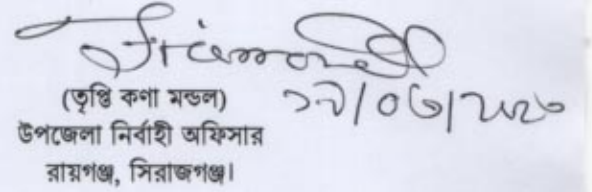 (তৃপ্তি কণা মন্ডল)
উপজেলা নির্বাহী অফিসার
রায়গঞ্জ, সিরাজগঞ্জ।